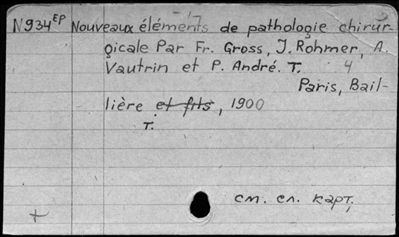 N934EP Nouveaux éléments de pathologie chirur-
gicale Par Fr. Gross, J. Rohmer, A.
Vautrin et P. André. T. 4
Paris, Bail-
lière et fils, 1900
T.
см. сл. карт.